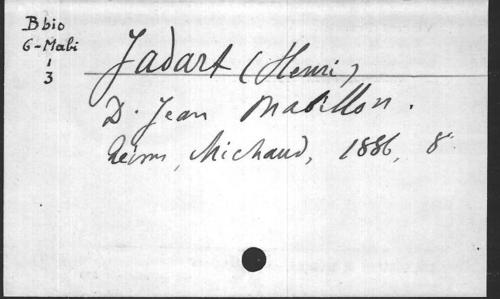 Bbio
G-Mabi
1
3
Jadart (Henri)
D. Jean Mabillon.
Reims, Michaud, 1886, 8°